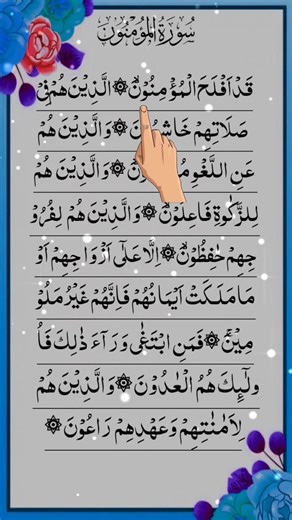 سُوْرَةُ الْمُؤْمِنُوْنَ
قَدْ اَفْلَحَ الْمُؤْمِنُوْنَۙ۞ الَّذِيْنَ هُمْ فِيْ
صَلَاتِهِمْ خَاشِعُوْنَ۞ وَالَّذِيْنَ هُمْ
عَنِ اللَّغْوِ مُ ... نَ۞ وَالَّذِيْنَ هُمْ
لِلزَّكٰوةِ فَاعِلُوْنَۙ۞ وَالَّذِيْنَ هُمْ لِفُرُوْ
جِهِمْ حٰفِظُوْنَۙ۞ اِلَّا عَلٰٓى اَزْوَاجِهِمْ اَوْ
مَا مَلَكَتْ اَيْمَانُهُمْ فَاِنَّهُمْ غَيْرُ مَلُوْ
مِيْنَۚ۞ فَمَنِ ابْتَغٰى وَرَآءَ ذٰلِكَ فَاُ
ولٰٓئِكَ هُمُ الْعٰدُوْنَۚ۞ وَالَّذِيْنَ هُمْ
لِاَمٰنٰتِهِمْ وَعَهْدِهِمْ رَاعُوْنَۙ۞